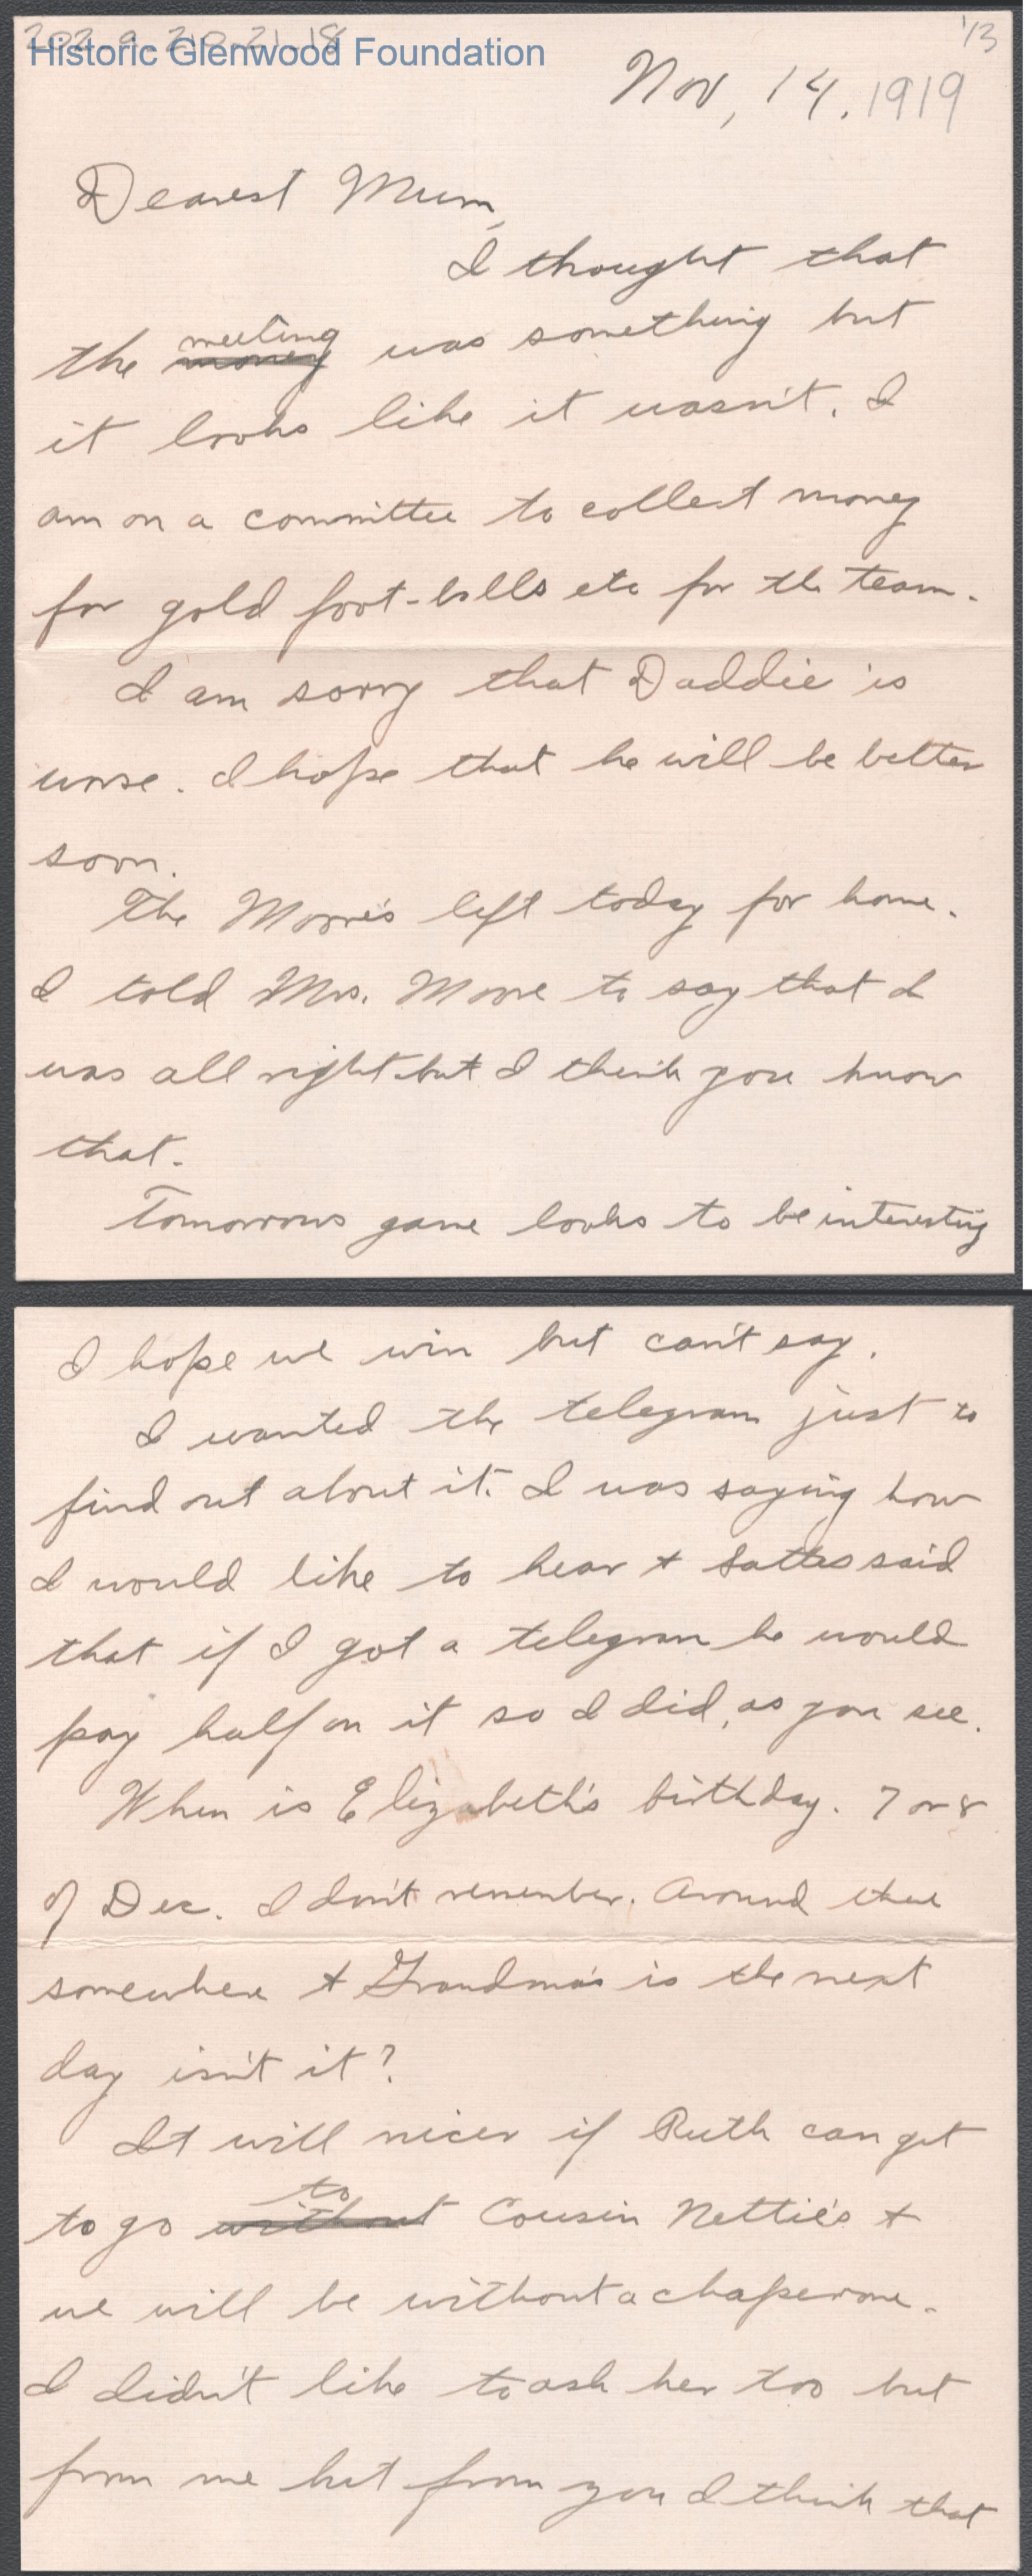 202.9.210.21.18
1/3
Historic Glenwood Foundation
Nov, 14. 1919
Dearest Mum,
I thought that
the money meeting was something but
it looks like it wasn't. I
am on a committee to collect money
for gold foot-balls etc for the team.
I am sorry that Daddie is
worse. I hope that he will be better
soon.
The Moore's left today for home.
I told Mrs. Moore to say that I
was all right but I think you know
that.
Tomorrows game looks to be interesting
I hope we win but can't say.
I wanted the telegram just to
find out about it. I was saying how
I would like to hear + said
that if I got a telegram he would
pay half on it so I did, as you see.
When is Elizabeth's birthday. 7 or 8
of Dec. I don't remember. Around there
somewhere + Grandma's is the next
day isn't it?
It will nicer if Ruth can get
to go without to Cousin Nettie's +
we will be without a chaperone.
I didn't like to ask her too but
from me but from you I think that